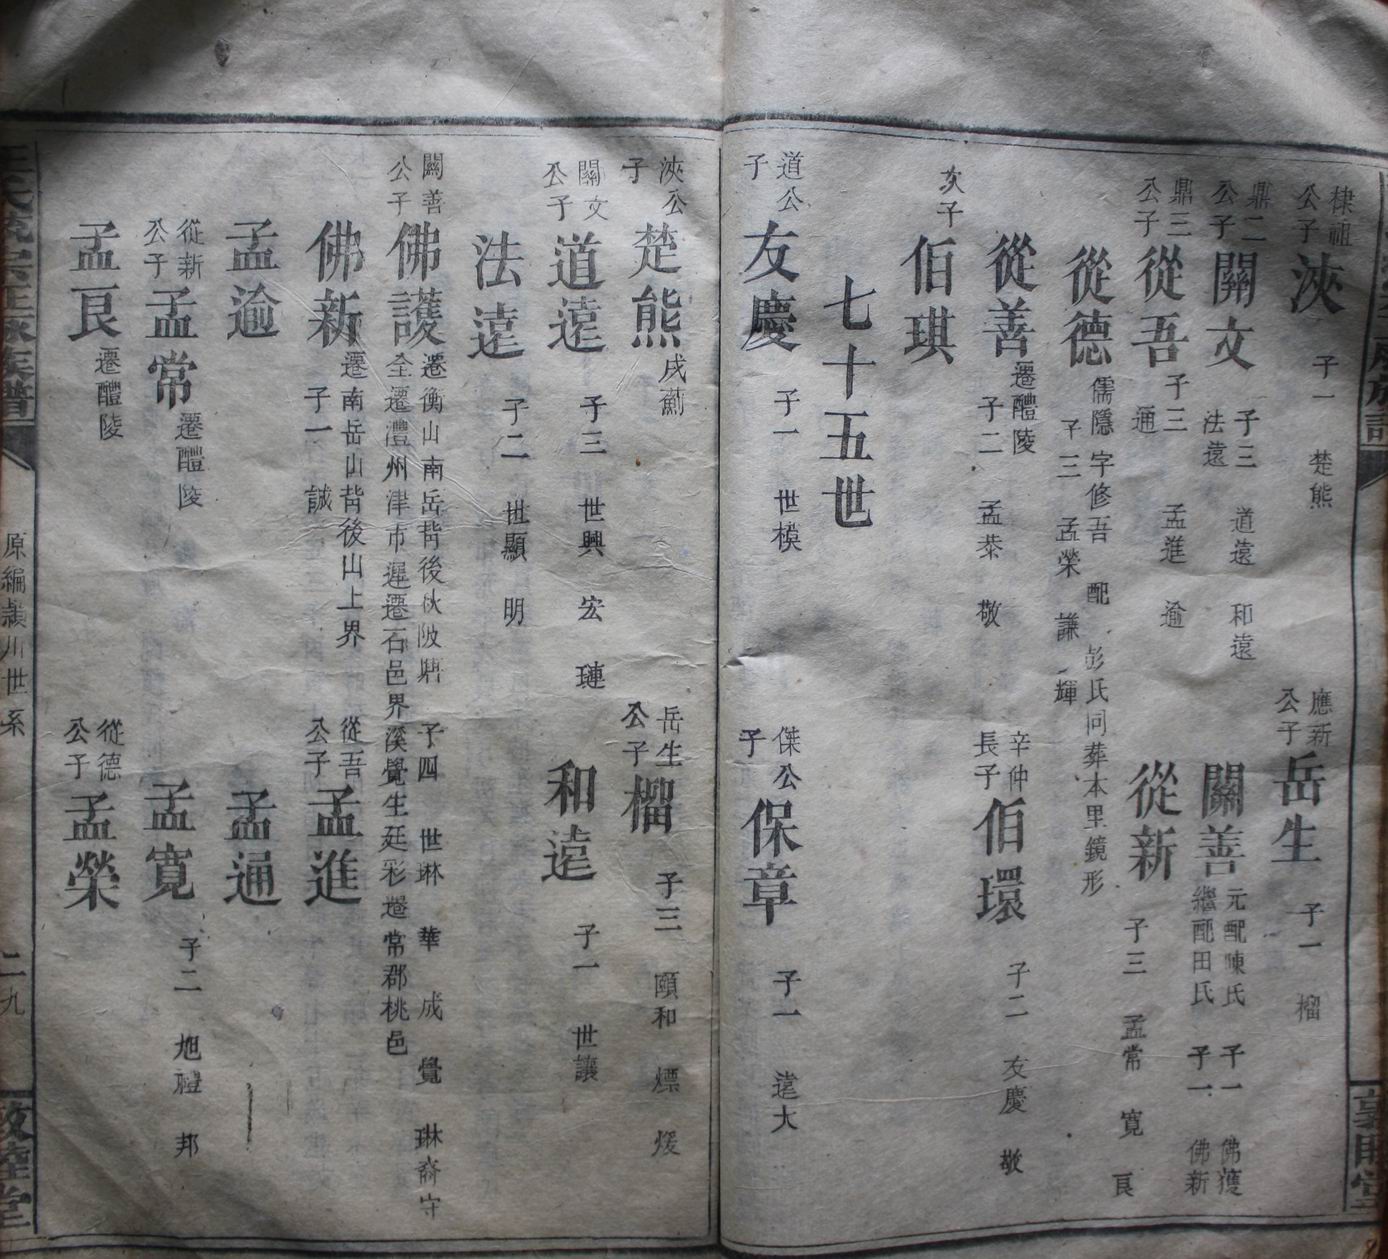 棣祖公子 浹 子一 楚熊
應新公子 岳生 子一 榴
鼎二公子 關文 子三 道遠 和遠 法遠
關善 元配陳氏 子一 佛護 繼配田氏 子一 佛新
鼎三公子 從吾 子三 孟進 逾 通
從新 子三 孟常 寬 艮
從德 儒隱 字修吾 配 彭氏同葬本里鏡形 子三 孟榮 謙 輝
從善 遷醴陵 子二 孟恭 敬
辛仲長子 伯環 子二 友慶 敬
次子 伯琪
七十五世
道公子 友慶 子一 世模
傑公子 保章 子一 遠大
浹公子 楚熊
岳生公子 榴 子三 頤和 煙 煖
關文公子 道遠 子三 世興 宏 璉
和遠 子一 世讓
法遠 子二 世顯 明
關善公子 佛護 遷衡山南岳背後 子四 世琳 華 成 覺 琳裔守
全遷澧州津市遲遷石邑界溪覺生廷彩遷常郡桃邑
佛新 遷南岳山背後山上界 子一 誠
從吾公子 孟進
孟逾
孟通
從新公子 孟常 遷醴陵
孟寬 子二 旭禮 邦
孟艮 遷醴陵
從德公子 孟榮
原編潁川世系
二九
敦睦堂